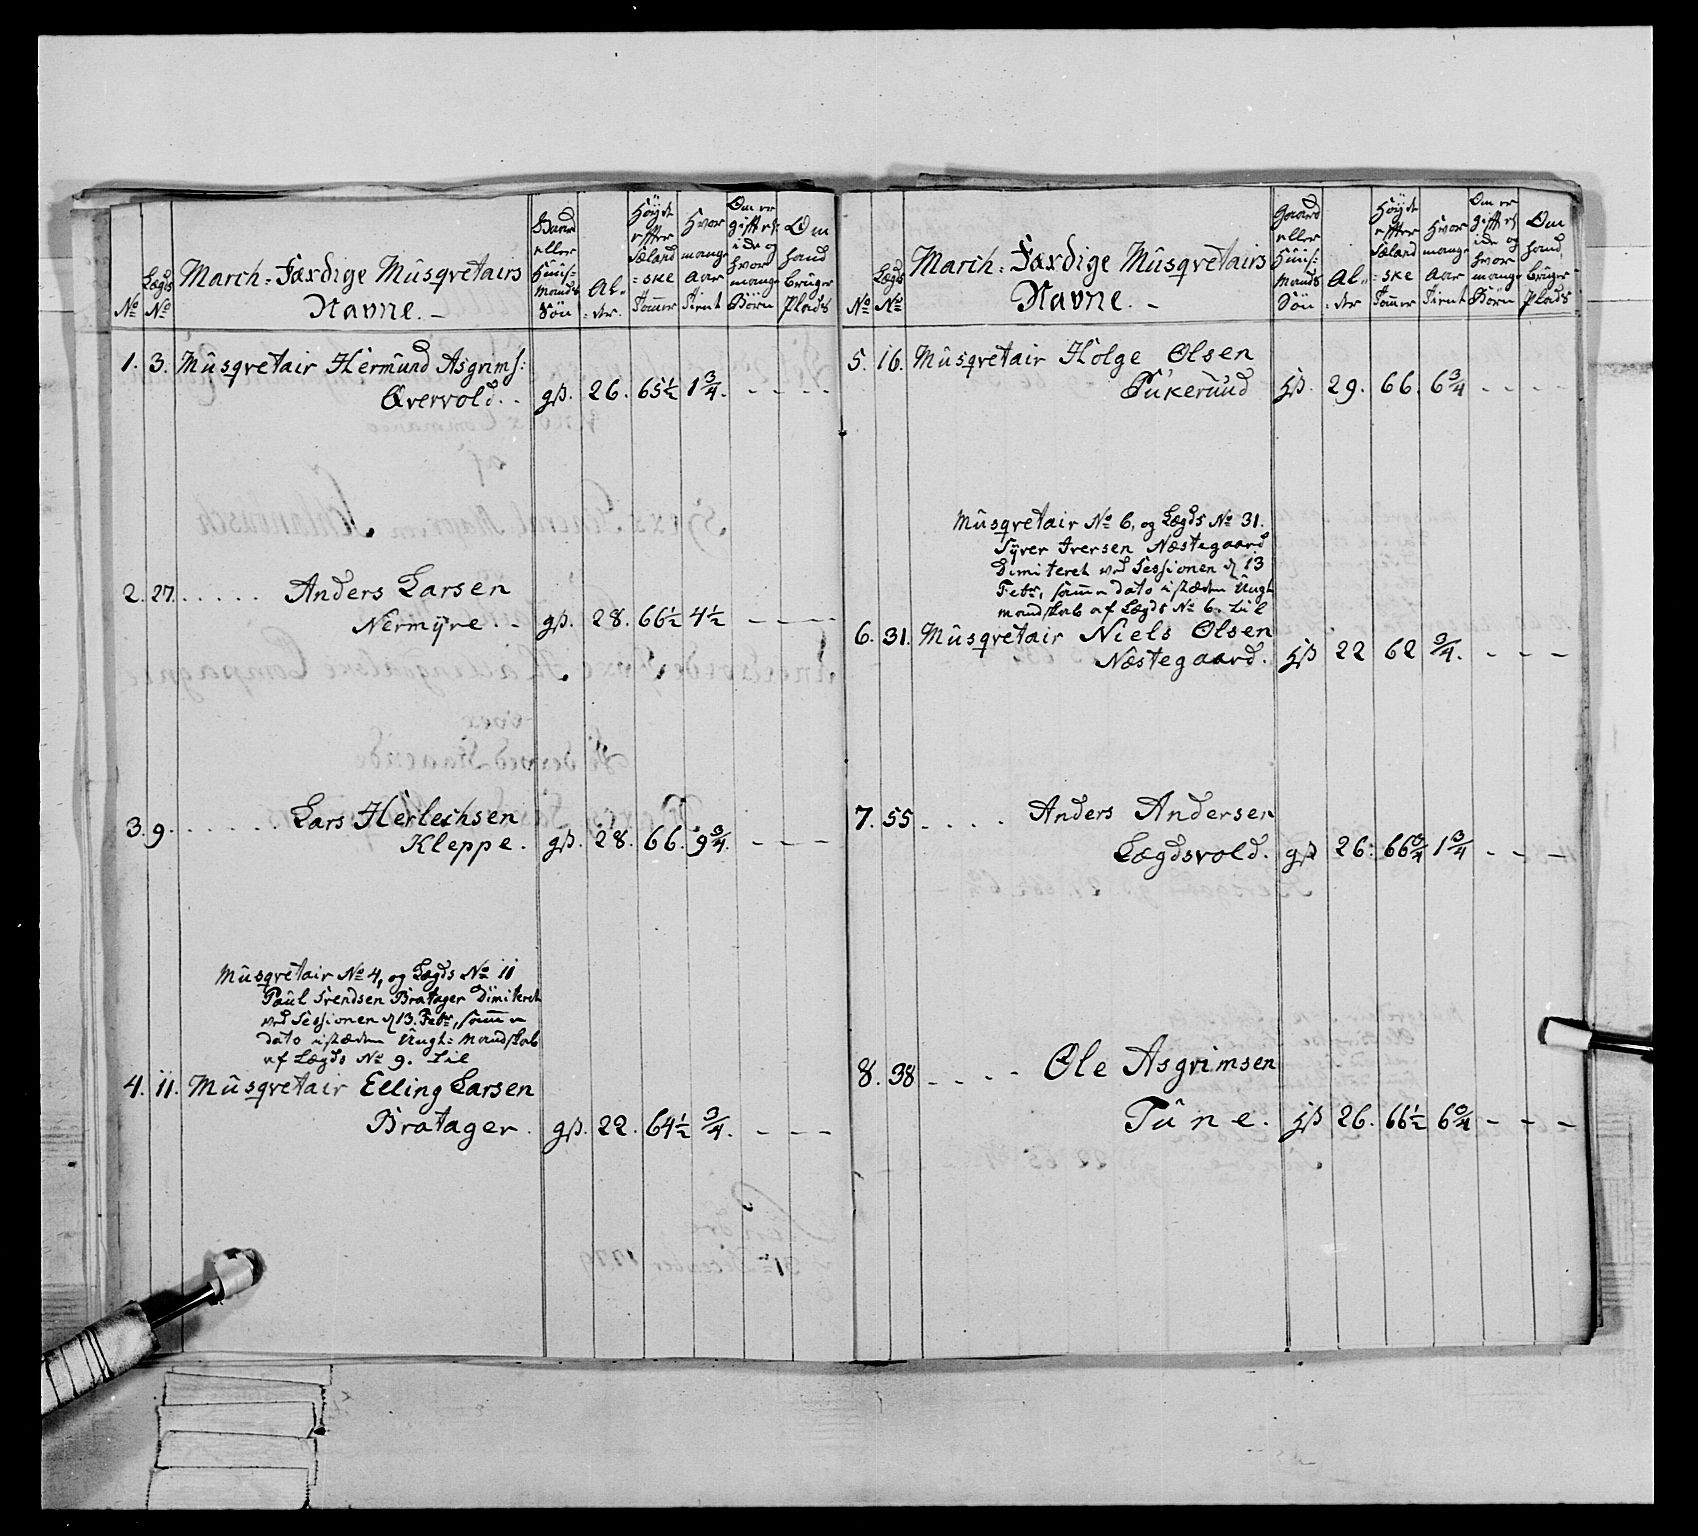 No
Lægds No
March-Færdige Musqvetairs
Navne.
Gaard eller Huus-mands Søn
Al-der.
Høÿde effter Sælandske Tommer
Hvor mange Aar Tient
Om er gifft et ide og hvor mange Børn
Om hand bruger Plads
1. 3. Musqvetair Hermund Asgrims:
Øvervold. gß. 26. 65½ 1¾. - - - -
2. 27. . . . . . Anders Larsen
Nermÿre. gß. 28. 66½ 4½ - - - -
3. 9. . . . . . . Lars Herleichsen
Kleppe. gß. 28. 66. 9¾. - - -
Musqvetair No 4, og Lægds No 11
Paul Svendsen Bratager Dimiteret
ved Sessionen d 13. Febr, samme
dato istæden Ungt-Mandskab
af Lægds No 9. Lil
4. 11. Musqvetair Elling Larsen
Bratager. gß. 22. 64½ ¾. - - -
No
Lægds No
March-Færdige Musqvetairs
Navne.
Gaard eller Huus-mands Søn
Al-der
Høÿde effter Sælandske Tommer
Hvor mange Aar Tient
Om er gifft et ide og hvor mange Børn
Om hand bruger Plads
5. 16. Musqvetair Holge Olsen
Pukeruud hß. 29. 66. 6¾ - - - -
Musqvetair No 6, og Lægds No 31.
Sÿver Iversen Næstegaard
Dimiteret ved Sessionen d 13
Febr, samme dato istæden Ungt
mandskab af Lægds No 6. Lil
6. 31. Musqvetair Niels Olsen
Næstegaard. hß 22 62 ¾. - - -
7. 55 . . . . Anders Andersen
Lægdsvold. gß 26. 66¾ 1¾ - - -
8. 38 - - - - Ole Asgrimsen
Tune. hß 26. 66½ 6¾ - - -